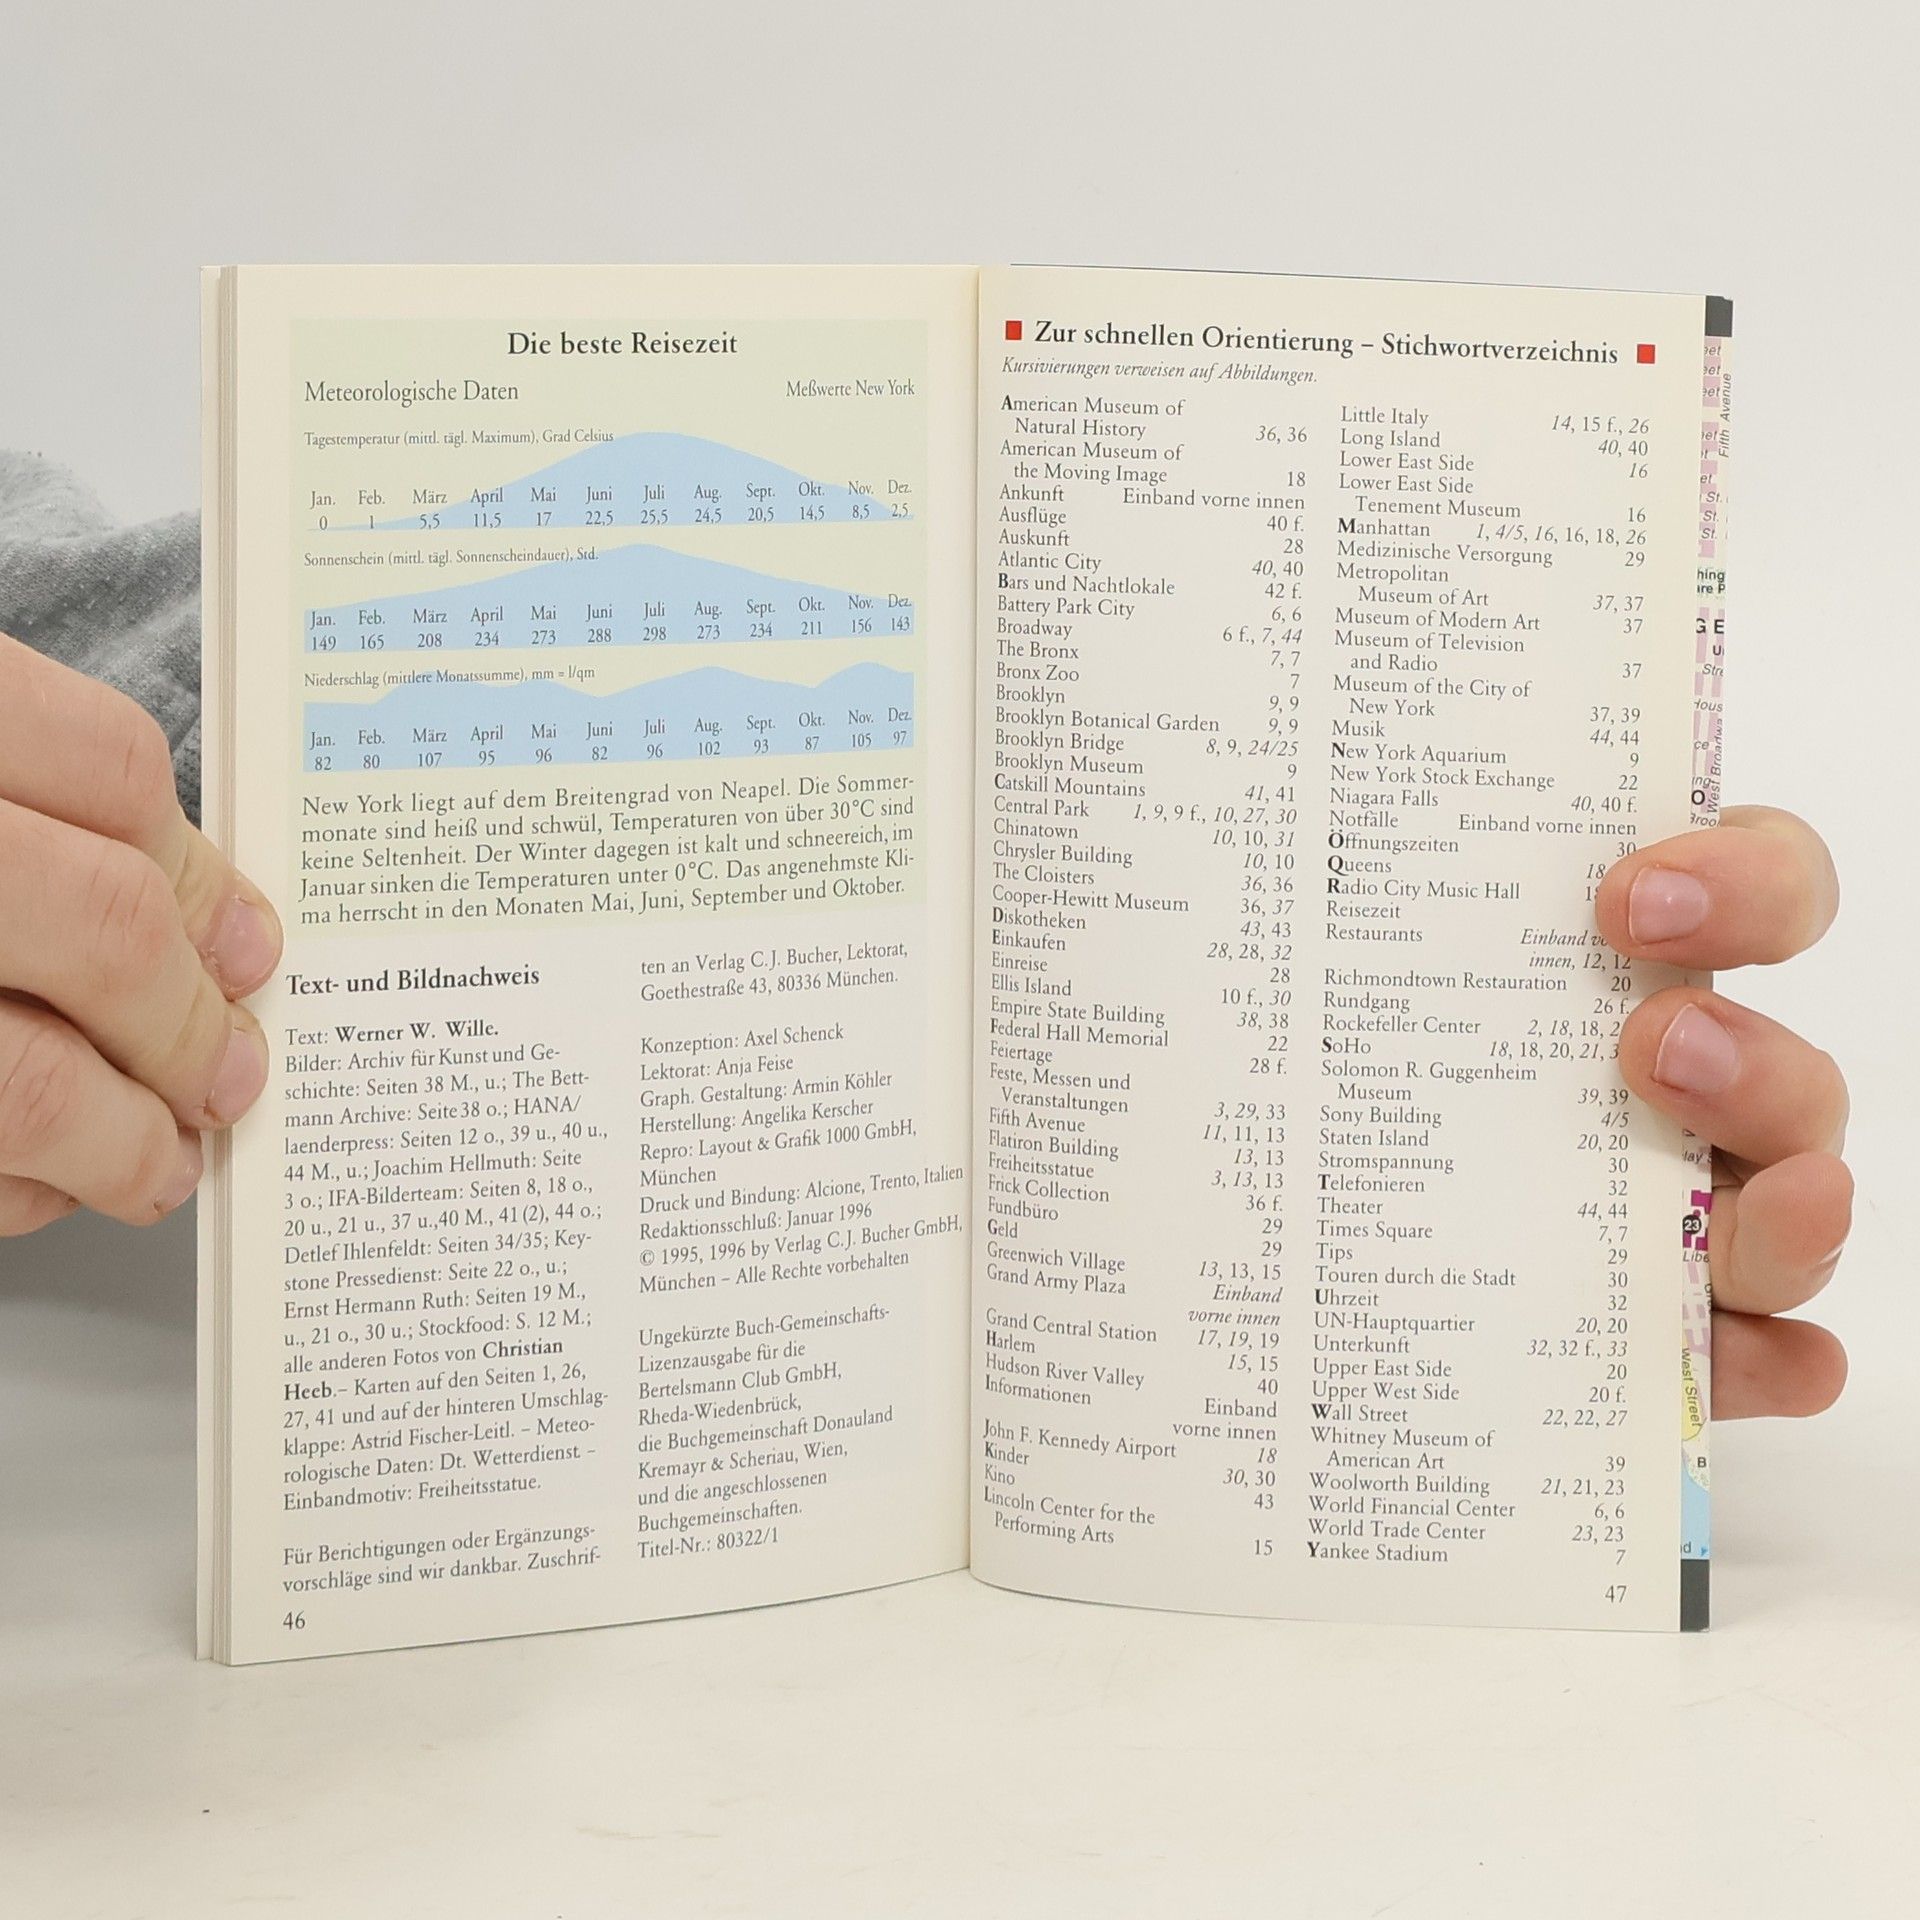 Die beste Reisezeit
Meteorologische Daten Meßwerte New York
Tagestemperatur (mittl. tägl. Maximum), Grad Celsius
Jan. Feb. März April Mai Juni Juli Aug. Sept. Okt. Nov. Dez.
0 1 5,5 11,5 17 22,5 25,5 24,5 20,5 14,5 8,5 2,5
Sonnenschein (mittl. tägl. Sonnenscheindauer), Std.
Jan. Feb. März April Mai Juni Juli Aug. Sept. Okt. Nov. Dez.
149 165 208 234 273 288 298 273 234 211 156 143
Niederschlag (mittlere Monatssumme), mm = l/qm
Jan. Feb. März April Mai Juni Juli Aug. Sept. Okt. Nov. Dez.
82 80 107 95 96 82 96 102 93 87 105 97
New York liegt auf dem Breitengrad von Neapel. Die Sommer-
monate sind heiß und schwül, Temperaturen von über 30°C sind
keine Seltenheit. Der Winter dagegen ist kalt und schneereich, im
Januar sinken die Temperaturen unter 0°C. Das angenehmste Kli-
ma herrscht in den Monaten Mai, Juni, September und Oktober.
Text- und Bildnachweis
Text: Werner W. Wille.
Bilder: Archiv für Kunst und Ge-
schichte: Seiten 38 M., u.; The Bett-
mann Archive: Seite 38 o.; HANA/
laenderpress: Seiten 12 o., 39 u., 40 u.,
44 M., u.; Joachim Hellmuth: Seite
3 o.; IFA-Bilderteam: Seiten 8, 18 o.,
20 u., 21 u., 37 u.,40 M., 41 (2), 44 o.;
Detlef Ihlenfeldt: Seiten 34/35; Key-
stone Pressedienst: Seite 22 o., u.;
Ernst Hermann Ruth: Seiten 19 M.,
u., 21 o., 30 u.; Stockfood: S. 12 M.;
alle anderen Fotos von Christian
Heeb.– Karten auf den Seiten 1, 26,
27, 41 und auf der hinteren Umschlag-
klappe: Astrid Fischer-Leitl. – Meteo-
rologische Daten: Dt. Wetterdienst. –
Einbandmotiv: Freiheitsstatue.
Für Berichtigungen oder Ergänzungs-
vorschläge sind wir dankbar. Zuschrif-
ten an Verlag C.J. Bucher, Lektorat,
Goethestraße 43, 80336 München.
Konzeption: Axel Schenck
Lektorat: Anja Feise
Graph. Gestaltung: Armin Köhler
Herstellung: Angelika Kerscher
Repro: Layout & Grafik 1000 GmbH,
München
Druck und Bindung: Alcione, Trento, Italien
Redaktionsschluß: Januar 1996
© 1995, 1996 by Verlag C.J. Bucher GmbH,
München – Alle Rechte vorbehalten
Ungekürzte Buch-Gemeinschafts-
Lizenzausgabe für die
Bertelsmann Club GmbH,
Rheda-Wiedenbrück,
die Buchgemeinschaft Donauland
Kremayr & Scheriau, Wien,
und die angeschlossenen
Buchgemeinschaften.
Titel-Nr.: 80322/1
46
Zur schnellen Orientierung – Stichwortverzeichnis
Kursivierungen verweisen auf Abbildungen.
American Museum of
Natural History 36, 36
American Museum of
the Moving Image 18
Ankunft Einband vorne innen
Ausflüge 40 f.
Auskunft 28
Atlantic City 40, 40
Bars und Nachtlokale 42 f.
Battery Park City 6, 6
Broadway 6 f., 7, 44
The Bronx 7, 7
Bronx Zoo 7
Brooklyn 9, 9
Brooklyn Botanical Garden 9, 9
Brooklyn Bridge 8, 9, 24/25
Brooklyn Museum 9
Catskill Mountains 41, 41
Central Park 1, 9, 9 f., 10, 27, 30
Chinatown 10, 10, 31
Chrysler Building 10, 10
The Cloisters 36, 36
Cooper-Hewitt Museum 36, 37
Diskotheken 43, 43
Einkaufen 28, 28, 32
Einreise 28
Ellis Island 10 f., 30
Empire State Building 38, 38
Federal Hall Memorial 22
Feiertage 28 f.
Feste, Messen und
Veranstaltungen 3, 29, 33
Fifth Avenue 11, 11, 13
Flatiron Building 13, 13
Freiheitsstatue 3, 13, 13
Frick Collection 36 f.
Fundbüro 29
Geld 29
Greenwich Village 13, 13, 15
Grand Army Plaza Einband
vorne innen
Grand Central Station 17, 19, 19
Harlem 15, 15
Hudson River Valley 40
Informationen Einband
vorne innen
John F. Kennedy Airport 18
Kinder 30, 30
Kino 43
Lincoln Center for the
Performing Arts 15
Little Italy 14, 15 f., 26
Long Island 40, 40
Lower East Side 16
Lower East Side
Tenement Museum 16
Manhattan 1, 4/5, 16, 16, 18, 26
Medizinische Versorgung 29
Metropolitan
Museum of Art 37, 37
Museum of Modern Art 37
Museum of Television
and Radio 37
Museum of the City of
New York 37, 39
Musik 44, 44
New York Aquarium 9
New York Stock Exchange 22
Niagara Falls 40, 40 f.
Notfälle Einband vorne innen
Öffnungszeiten 30
Queens 18
Radio City Music Hall
Reisezeit
Restaurants Einband
innen, 12, 12
Richmondtown Restauration 20
Rundgang 26 f.
Rockefeller Center 2, 18, 18,
SoHo 18, 18, 20, 21,
Solomon R. Guggenheim
Museum 39, 39
Sony Building 4/5
Staten Island 20, 20
Stromspannung 30
Telefonieren 32
Theater 44, 44
Times Square 7, 7
Tips 29
Touren durch die Stadt 30
Uhrzeit 32
UN-Hauptquartier 20, 20
Unterkunft 32, 32 f., 33
Upper East Side 20
Upper West Side 20 f.
Wall Street 22, 22, 27
Whitney Museum of
American Art 39
Woolworth Building 21, 21, 23
World Financial Center 6, 6
World Trade Center 23, 23
Yankee Stadium 7
47
Fifth Avenue
West Broadway
23
West Street